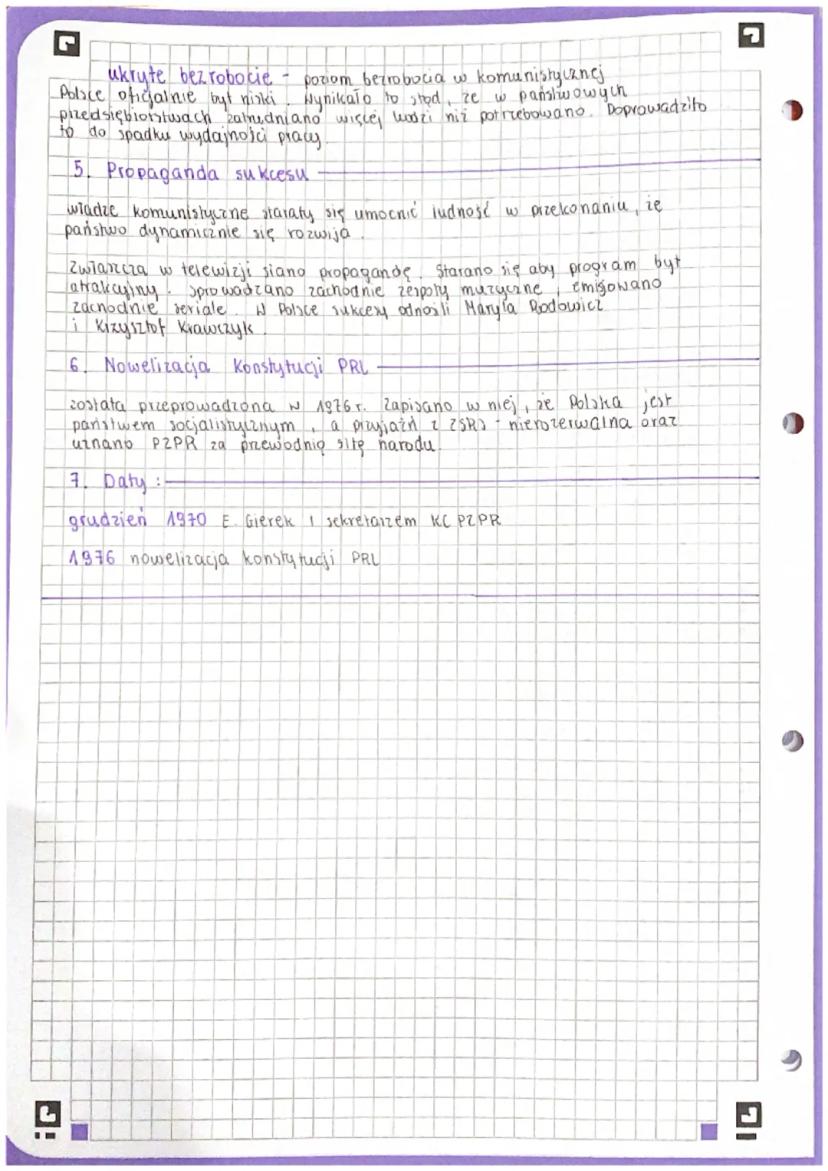 ukryte bezrobocie - poziom bezrobocia w komunistycznej
Polsce oficjalnie był niski. Wynikało to stąd, że w państwowych
przedsiębiorstwach zatrudniano więcej ludzi niż potrzebowano. Doprowadziło
to do spadku wydajności pracy.
5. Propaganda sukcesu
władze komunistyczne starały się umocnić ludność w przekonaniu, że
państwo dynamicznie się rozwija.
Zwłaszcza w telewizji siano propagandę. Starano się aby program był
atrakcyjny. Sprowadzano zachodnie zespoły muzyczne, emisowano
zachodnie seriale. W Polsce sukcesy odnosili Maryla Rodowicz
i Krzysztof Krawczyk.
6. Nowelizacja Konstytucji PRL
została przeprowadzona w 1976 r. Zapisano w niej, że Polska jest
państwem socjalistycznym, a przyjaźń z ZSRS - nierozerwalna oraz
uznano PZPR za przewodnią siłę narodu.
7. Daty:
grudzień 1970 E. Gierek I sekretarzem KC PZPR
1976 nowelizacja konstytucji PRL